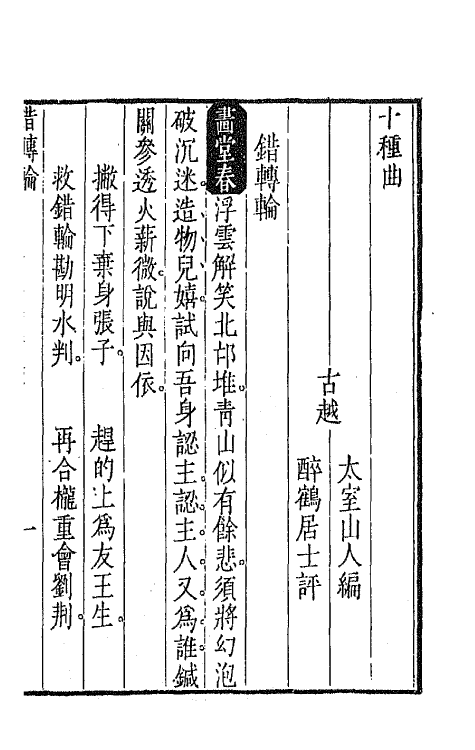 十種曲
古越
太室山人編
醉鶴居士評
錯轉輪
畫堂春 浮雲解笑北邙堆。靑山似有餘悲。須將幻泡
破沉迷。造物兒嬉。試向吾身認主。認主人又爲誰。鍼
關參透火薪微。說與因依。
撇得下棄身張子。 趕的上爲友王生。
救錯輪勘明水判。 再合櫳重會劉荆。
錯轉輪 一